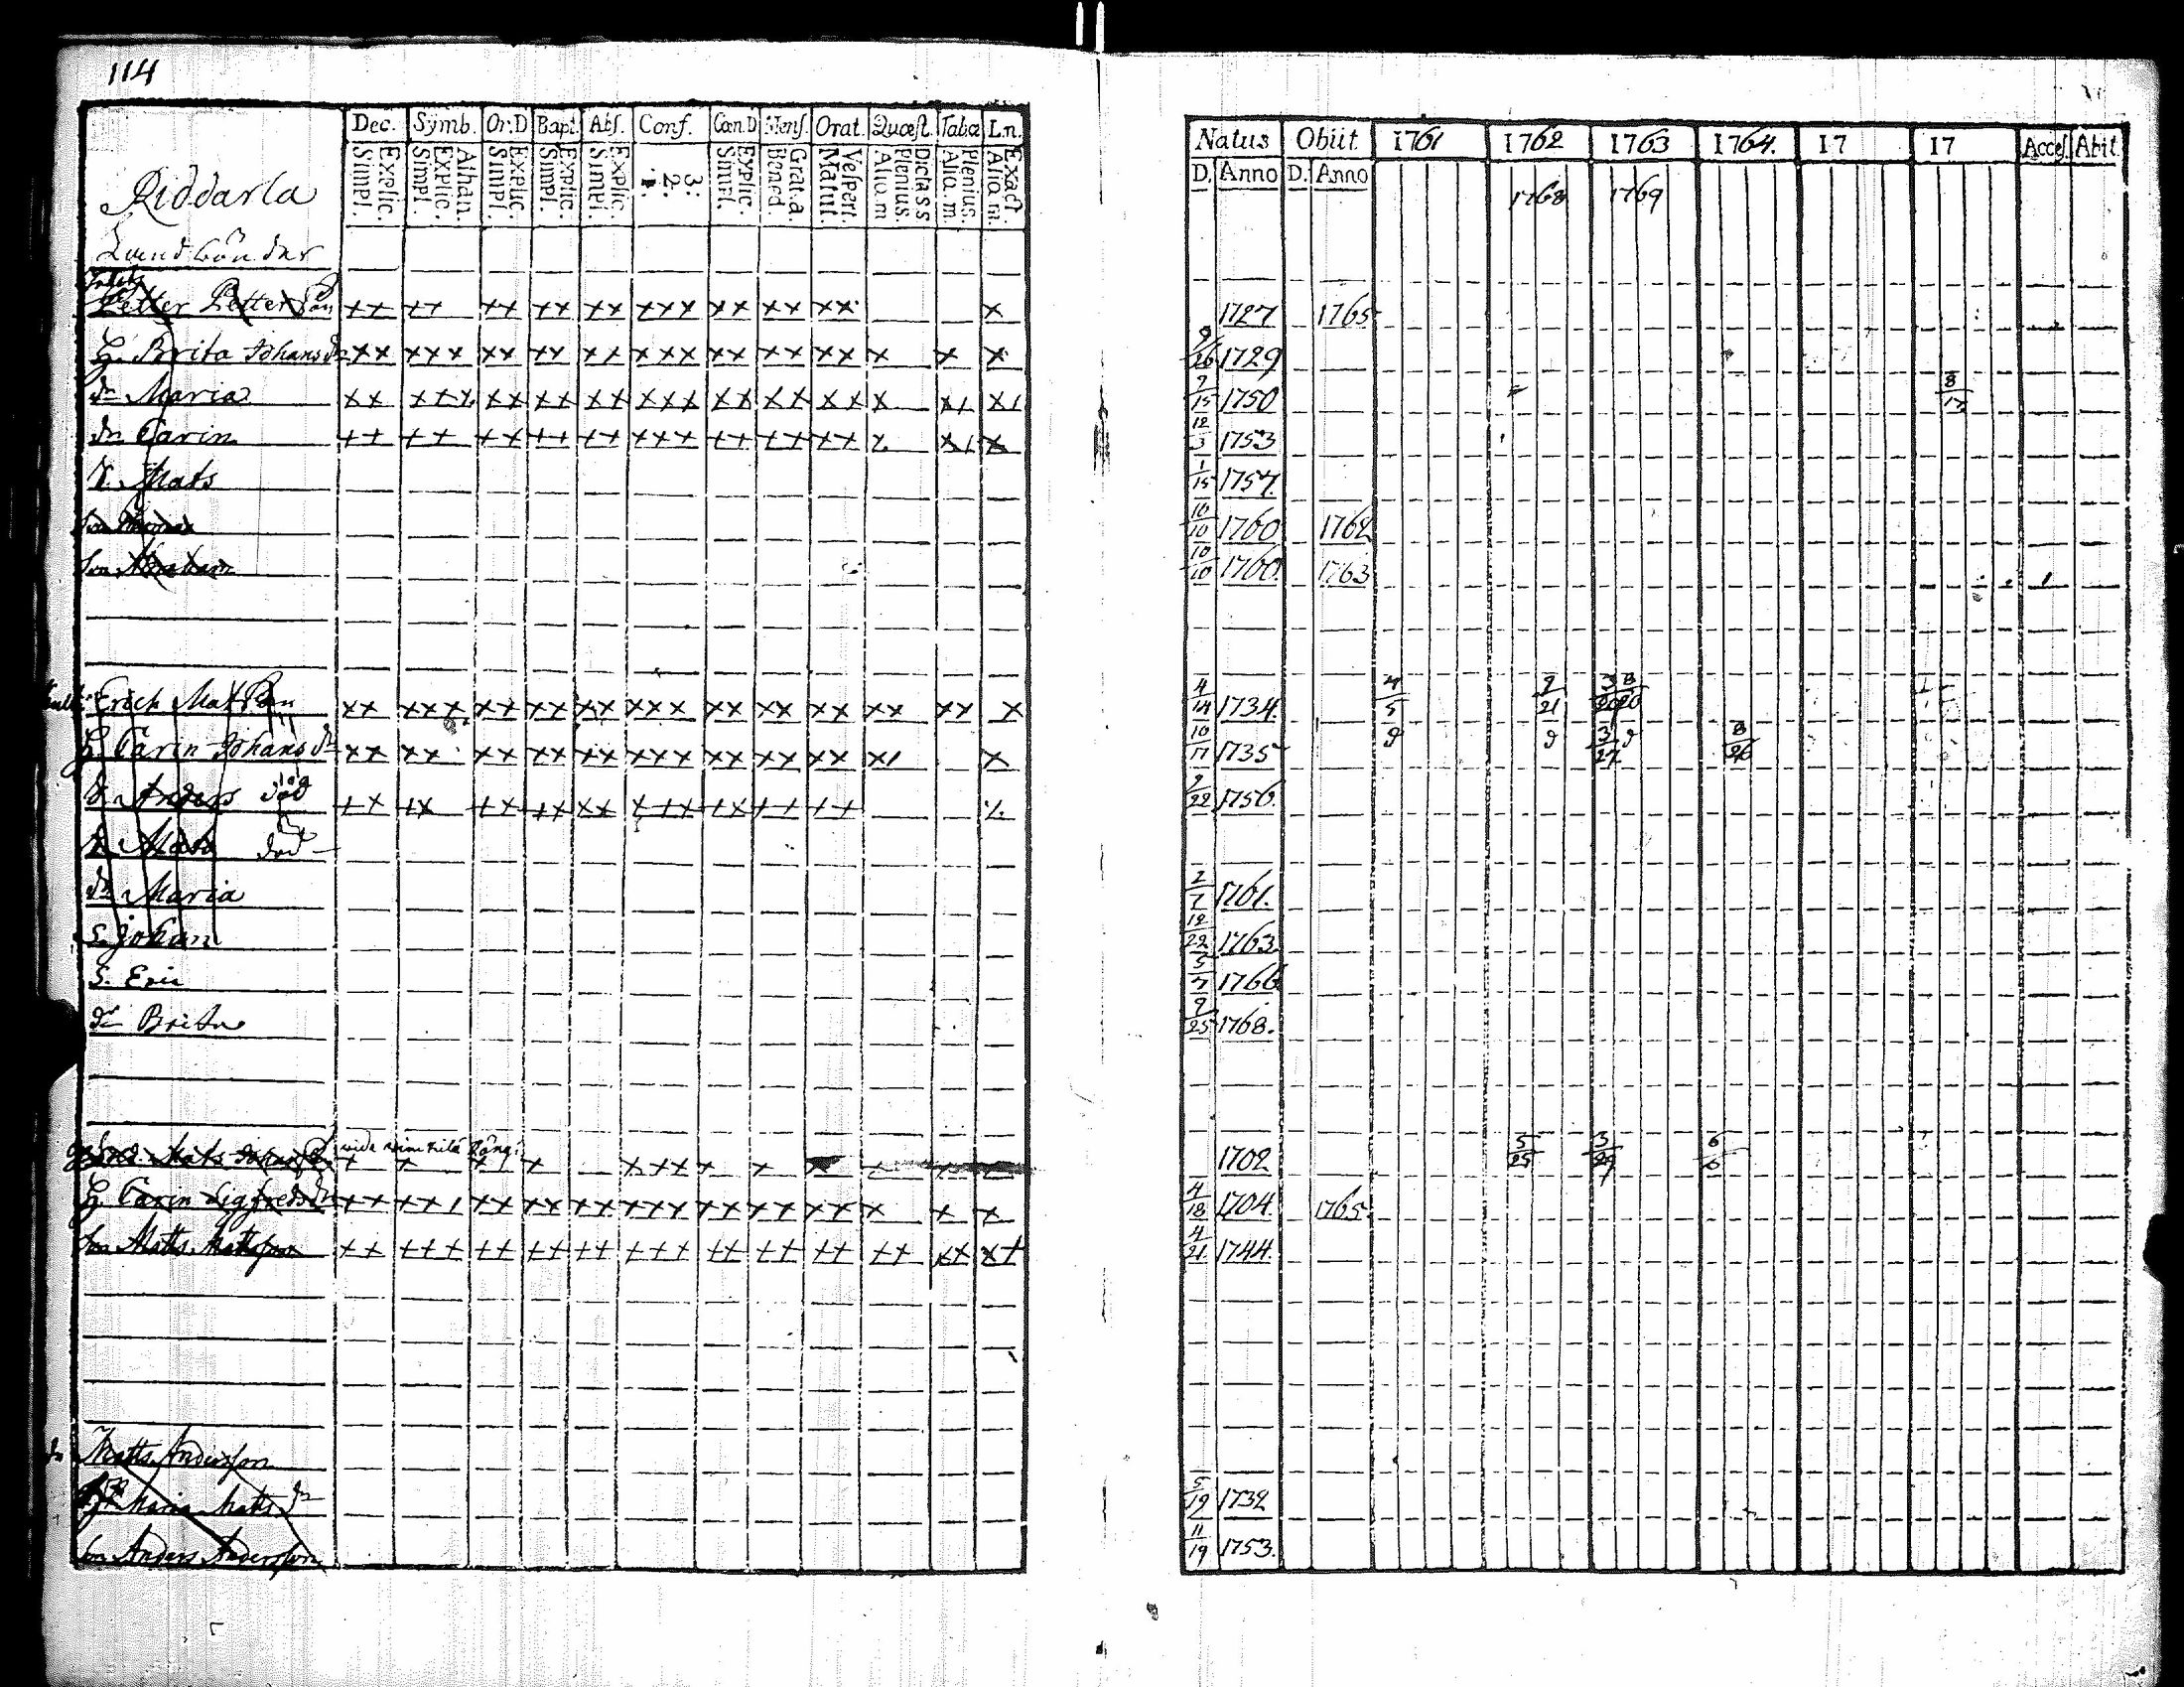 114
Dec. Symb. Or.D Bapt. Abs. Conf. Cœn.D Mens. Orat. Quæst. Tabul Ln.
Explic. Simpl. Athan. Explic. Simpl. Explic. Simpl. Explic. Simpl. Explic. Simpl. 3: 2: 1: Explic. Simpl. Grat. a Bened. Vespert. Matut. Dclass Plenius. Aliq. m Plenius. Aliq. m. Exact Aliq. m.
Natus Obiit. 1761 1762 1763 1764. 17 17 Acces. Abit
D. Anno D. Anno
1768 1769
Riddarla
Petter Petters son xx xx xx xx xx xxx xx xx xx x 1727 1765
H. Brita Johans dr xx xxx xx xx xx xxx xx xx xx x x x 9/26 1729
dr Maria xx xxx xx xx xx xxx xx xx xx x x1 x1 9/15 1750 8/17
dr Carin xx xx xx xx xx xxx xx xx xx x x1 x 12/3 1753
Mats 1/15 1757
10/10 1760 1762
Son Abraham 10/10 1760 1763
Erich Matsson xx xxx xx xx xx xxx xx xx xx xx xx x 4/14 1734
H. Carin Johans dr xx xx xx xx xx xxx xx xx xx x1 x 10/17 1735 3/27 8/26
Anders död xx xx xx xx xx xxx xx xx xx x 9/22 1756
död
dr Maria 2/7 1761.
S. Johan 12/22 1763
S. Eric 5/7 1766
dr Brita 9/25 1768.
Mats x x x x xxx x x 1702 5/25 3/29 6/6
H. Carin Sigfreds dr xx xx1 xx xx xx xxx xx xx xx x x x 4/18 1704 1765
Son Mats Matsson xx xxx xx xx xx xxx xx xx xx xx xx xx 4/21 1744.
Matts Andersson
Maria Mats dr 5/19 1732
Son Anders Andersson 11/19 1753.